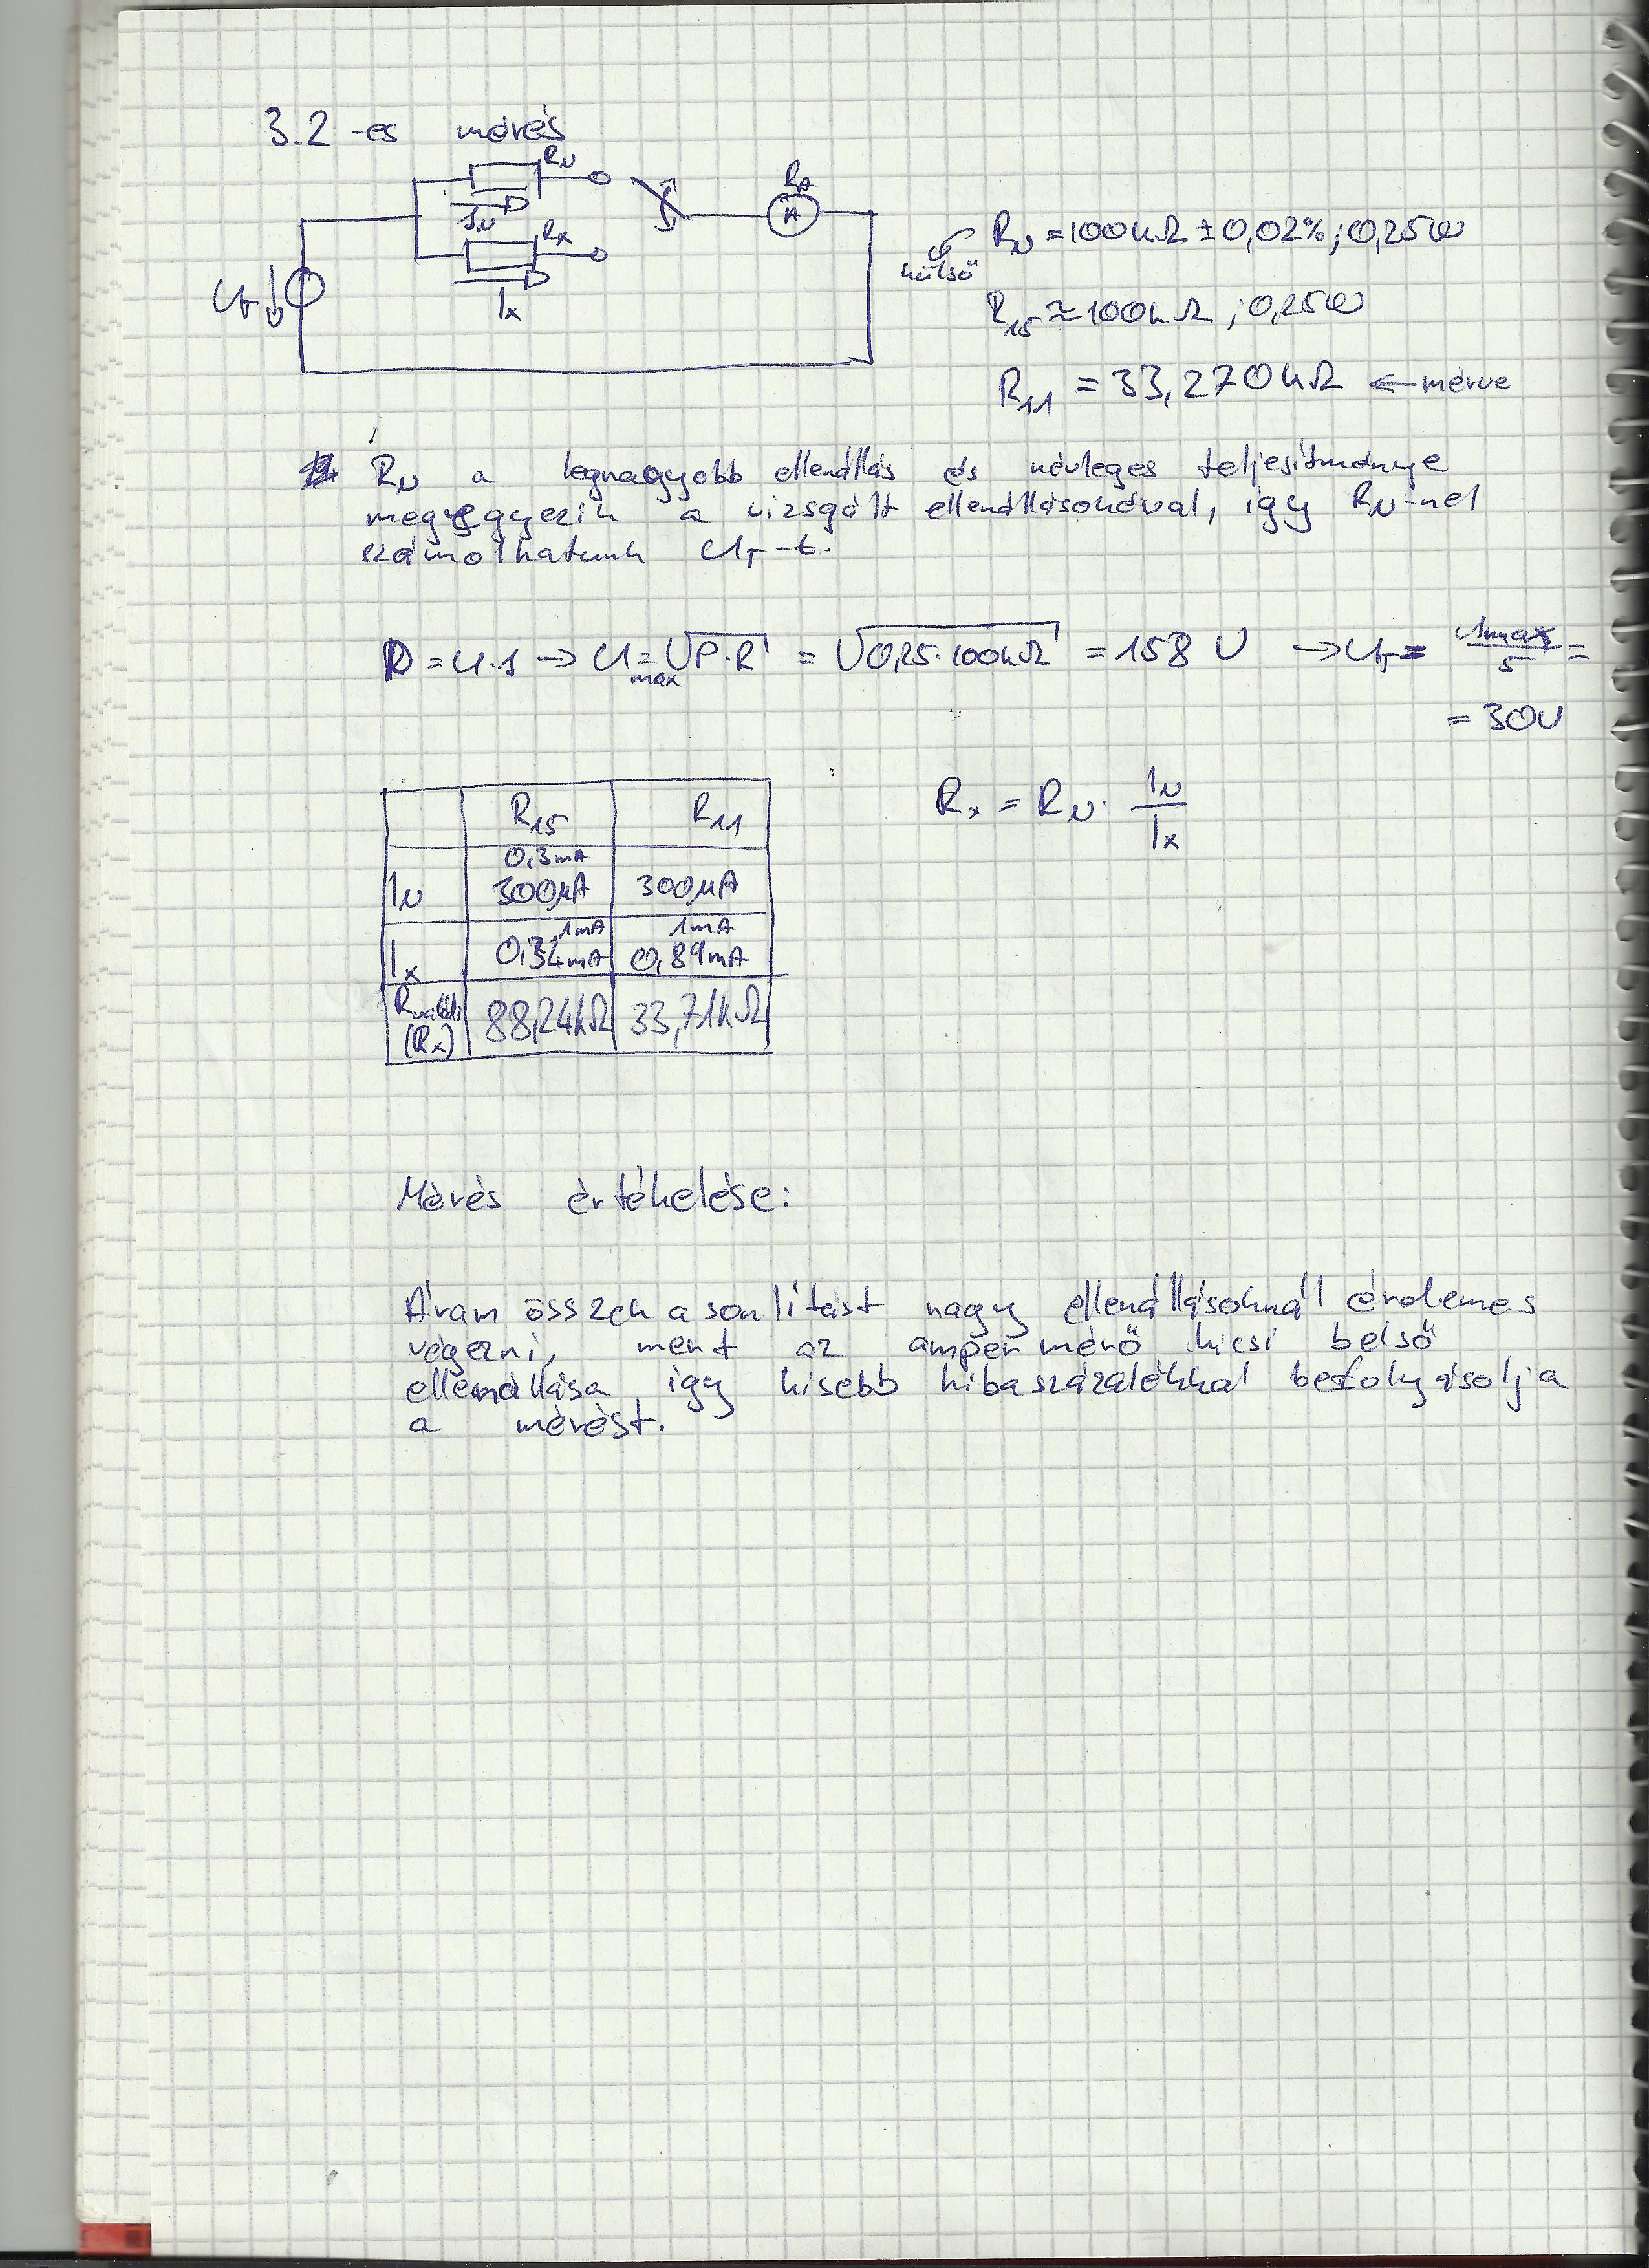 3.2 -es mérés
R_N
I_N
R_x
I_x
U_T
R_A
A
külső
R_N = 100kΩ ± 0,02% ; 0,25W
R_15 ≈ 100kΩ ; 0,25W
R_11 = 33,270kΩ ← mérve
R_N a legnagyobb ellenállás és névleges teljesítménye
megegyezik a vizsgált ellenállásokéval, így R_N-nel
számolhatunk U_T-t.
P = U·I → U_max = √P·R = √0,25·100kΩ = 158 V → U_T = U_max/5 =
= 30V
R_15 R_11
I_N 0,3mA 300μA 300μA
I_x 1mA 0,34mA 1mA 0,89mA
R_valódi (R_x) 88,24kΩ 33,71kΩ
R_x = R_N · I_N/I_x
Mérés értékelése:
Áram összehasonlítást nagy ellenállásoknál érdemes
végezni, mert az ampermérő kicsi belső
ellenállása így kisebb hibaszázalékkal befolyásolja
a mérést.